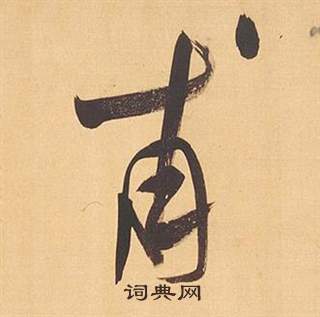 甫
词典网